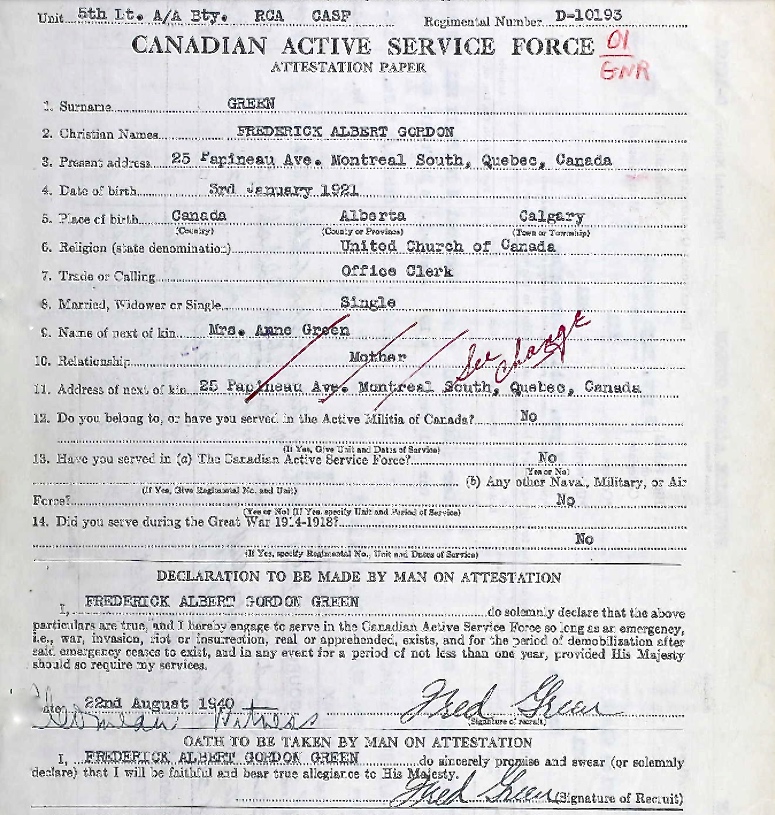 Unit 5th Lt. A/A Bty. RCA CASF Regimental Number D-10193
CANADIAN ACTIVE SERVICE FORCE 01
GNR
ATTESTATION PAPER
1. Surname GREEN
2. Christian Names FREDERICK ALBERT GORDON
3. Present address 25 Papineau Ave. Montreal South, Quebec, Canada
4. Date of birth 3rd January 1921
5. Place of birth Canada Alberta Calgary
(Country) (County or Province) (Town or Township)
6. Religion (state denomination) United Church of Canada
7. Trade or Calling Office Clerk
8. Married, Widower or Single Single
9. Name of next of kin Mrs. Anne Green
10. Relationship Mother See change
11. Address of next of kin 25 Papineau Ave. Montreal South, Quebec, Canada
12. Do you belong to, or have you served in the Active Militia of Canada? No
(If Yes, Give Unit and Dates of Service)
13. Have you served in (a) The Canadian Active Service Force? No
(Yes or No)
(b) Any other Naval, Military, or Air
(If Yes, Give Regimental No. and Unit)
Force? No
(Yes or No) (If Yes, specify Unit and Period of Service)
14. Did you serve during the Great War 1914-1918?
No
(If Yes, specify Regimental No., Unit and Dates of Service)
DECLARATION TO BE MADE BY MAN ON ATTESTATION
I, FREDERICK ALBERT GORDON GREEN do solemnly declare that the above
particulars are true, and I hereby engage to serve in the Canadian Active Service Force so long as an emergency,
i.e., war, invasion, riot or insurrection, real or apprehended, exists, and for the period of demobilization after
said emergency ceases to exist, and in any event for a period of not less than one year, provided His Majesty
should so require my services.
Date 22nd August 1940 Fred Green
Witness (Signature of Recruit)
OATH TO BE TAKEN BY MAN ON ATTESTATION
I, FREDERICK ALBERT GORDON GREEN do sincerely promise and swear (or solemnly
declare) that I will be faithful and bear true allegiance to His Majesty.
Fred Green (Signature of Recruit)